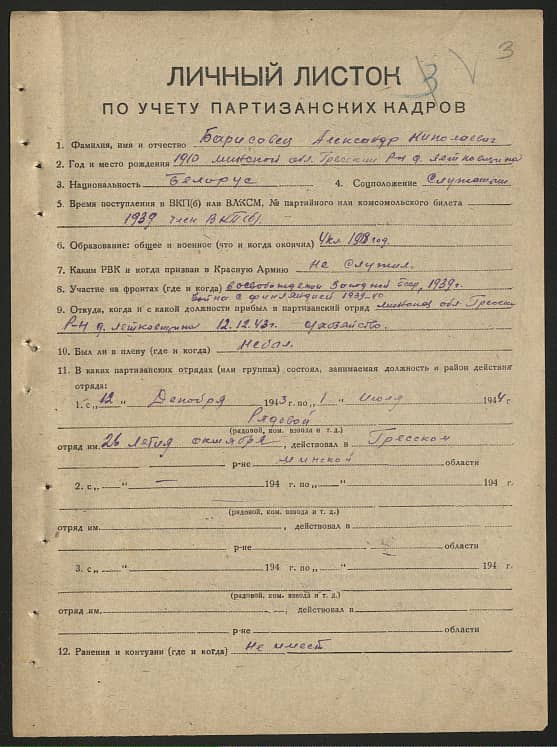 3
3 V
ЛИЧНЫЙ ЛИСТОК
ПО УЧЕТУ ПАРТИЗАНСКИХ КАДРОВ
1. Фамилия, имя и отчество Барисовец Александр Николаевич
2. Год и место рождения 1910 минской обл. Гресский р-н д. леткавщина
3. Национальность Белорус 4. Соцположение Служащий
5. Время поступления в ВКП(б) или ВЛКСМ, № партийного или комсомольского билета
1939 член ВКП(б).
6. Образование: общее и военное (что и когда окончил) 4 кл. год.
7. Каким РВК и когда призван в Красную Армию Не Служил.
8. Участие на фронтах (где и когда) Западной бсср, 1939г.
война с финляндией 1939-40
9. Откуда, когда и с какой должности прибыл в партизанский отряд минской обл. Гресский
р-н д. 12.12.43г.
10. Был ли в плену (где и когда) Небал.
11. В каких партизанских отрядах (или группах) состоял, занимаемая должность и район действия
отряда:
1. с „12 " Декабря 1943 г. по „1 " Июля 1944 г
Рядовой
(рядовой, ком. взвода и т. д.)
отряд им. 26 летия октября, действовал в Гресском
р-не минской области
2. с „ — " — 194 г. по „ " 194 г.
(рядовой, ком. взвода и т. д.)
отряд им. , действовал в
р-не области
3. с „ " 194 г. по „ " 194 г.
(рядовой, ком. взвода и т. д.)
отряд им. , действовал в
р-не области
12. Ранения и контузии (где и когда) Не имеет